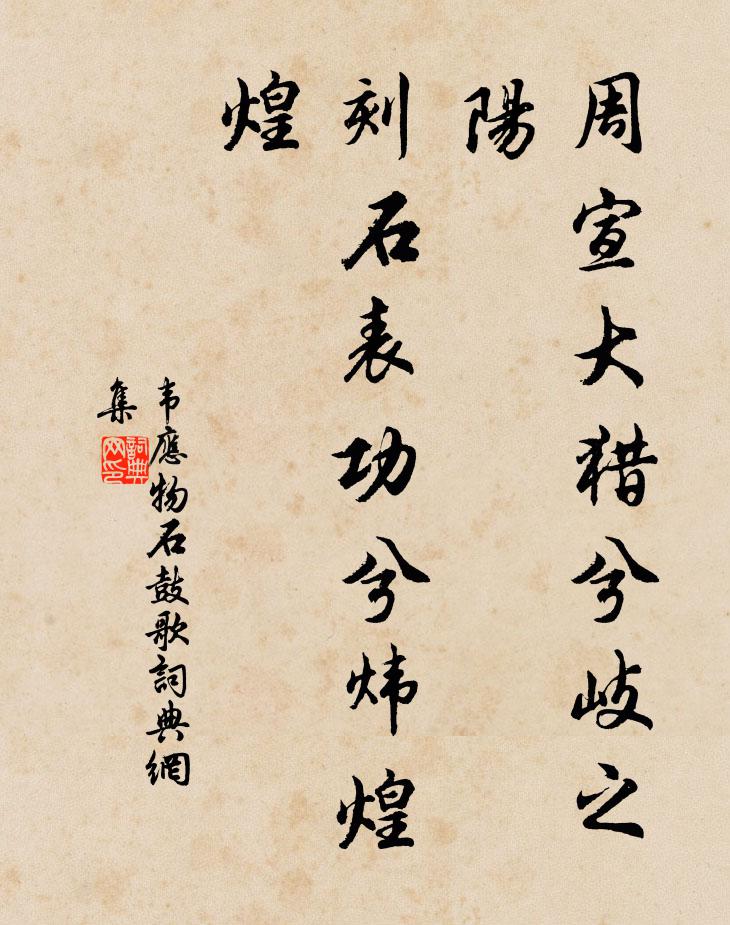 周宣大猎兮岐之
陽
刻石表功兮炜煌
煌
韦應物石鼓歌詞典網
集
詞典
网印